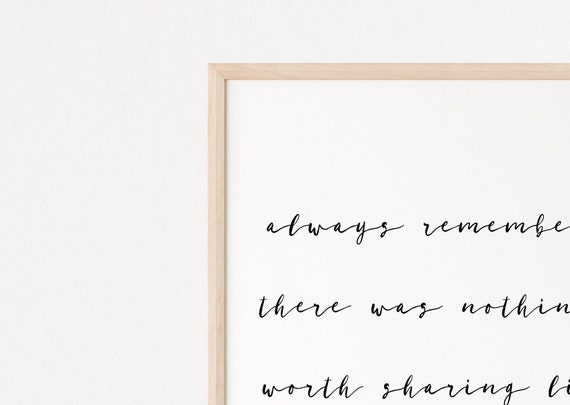 always remembe
there was nothin
worth sharing li